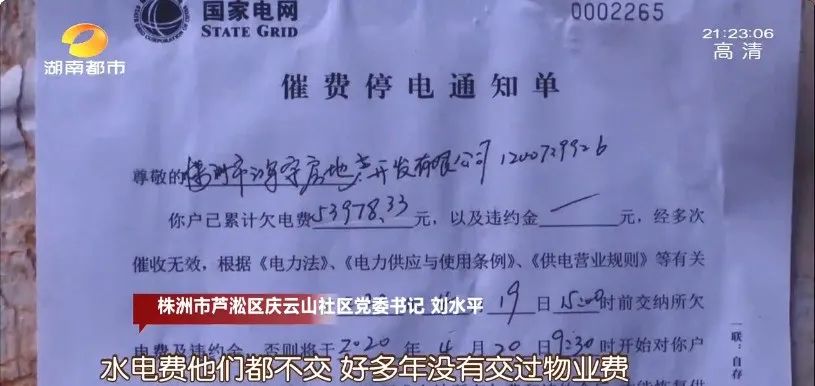 国家电网
STATE GRID
0002265
21:23:06
高清
湖南都市
催费停电通知单
尊敬的株洲市 房地产开发有限公司 1200729926
你户已累计欠电费53978.33元，以及违约金 — 元，经多次
催收无效，根据《电力法》、《电力供应与使用条例》、《供电营业规则》等有关
19日15:00时前交纳所欠
株洲市芦淞区庆云山社区党委书记 刘水平
电费及违约金，否则将于2020年4月20日9:30时开始对你户
水电费他们都不交 好多年没有交过物业费
一联：自存